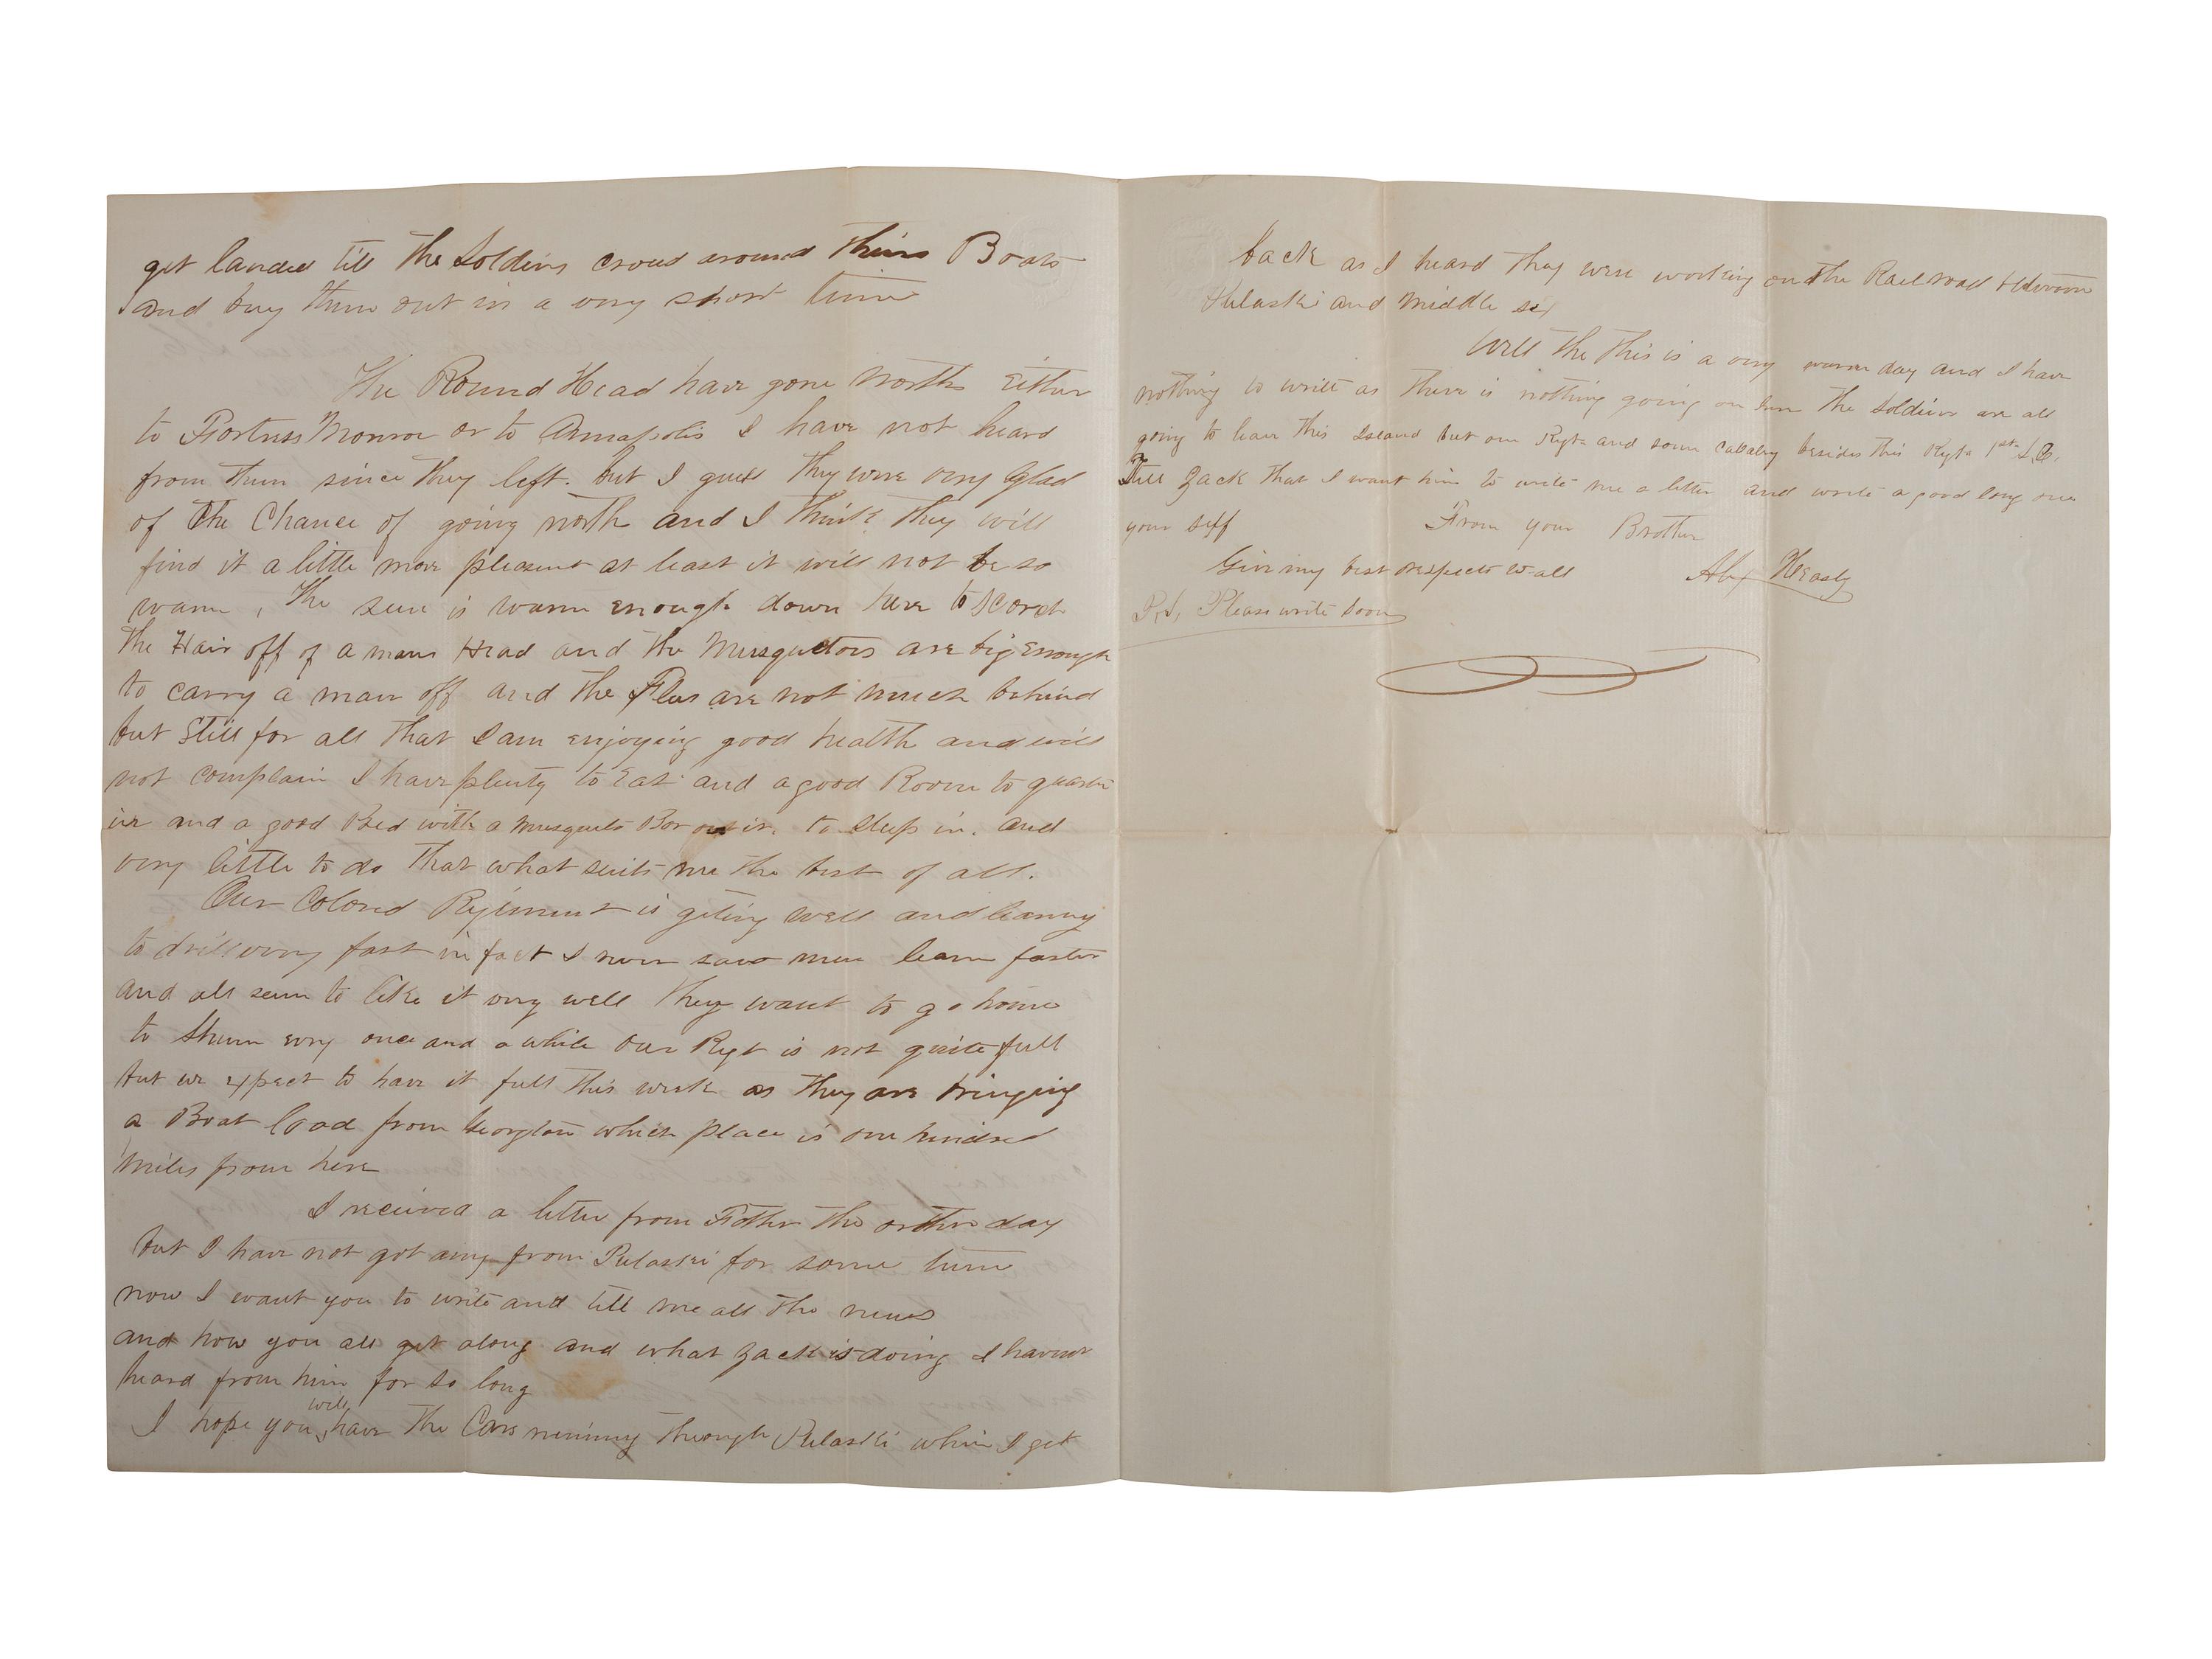 get landed till the Soldiers croud around thier Boats
and buy them out in a very short time
The Round Head have gone North Either
to Fortress Monroe or to Annapolis I have not heard
from them since they left. but I guess they were very Glad
of the Chance of going north and I think they will
find it a little more pleasent at least it will not be so
warm, The sun is warm enough down here to scorch
the Hair off of a mans Head and the Musquetoes are big Enough
to carry a man off and the Fleas are not much behind
but Still for all that I am enjoying good health and will
not complain I have plenty to Eat and a good Room to quarter
in and a good Bed with a musqueto Bar to sleep in. and
very little to do that what suits me the best of all.
Our Colored Regiment is geting well and learning
to drill very fast in fact I never saw men learn faster
and all seem to like it very well they want to go home
to every once and a while Our Regt is not quite full
but we expect to have it full this week as they are bringing
a Boat load from which place is one hundred
miles from here
I received a letter from Father the other day
but I have not got any from Pulaski for some time
now I want you to write and tell me all the news
and how you all get along and what Zack is doing I havent
heard from him for so long
I hope you will have the Cars running through Pulaski when I get
back as I heard they were working on the Rail road between
Pulaski and Middle sex
Well the this is a very warm day and I have
nothing to write as there is nothing going on here The Soldiers are all
going to leave this Island but our Regt and some Cavalry besides this Regt 1st S.C.
Tell Zack that I want him to write me a letter and write a good long one
your self From your Brother
Give my best respects to all Alex Heasly
P.S. Please write soon